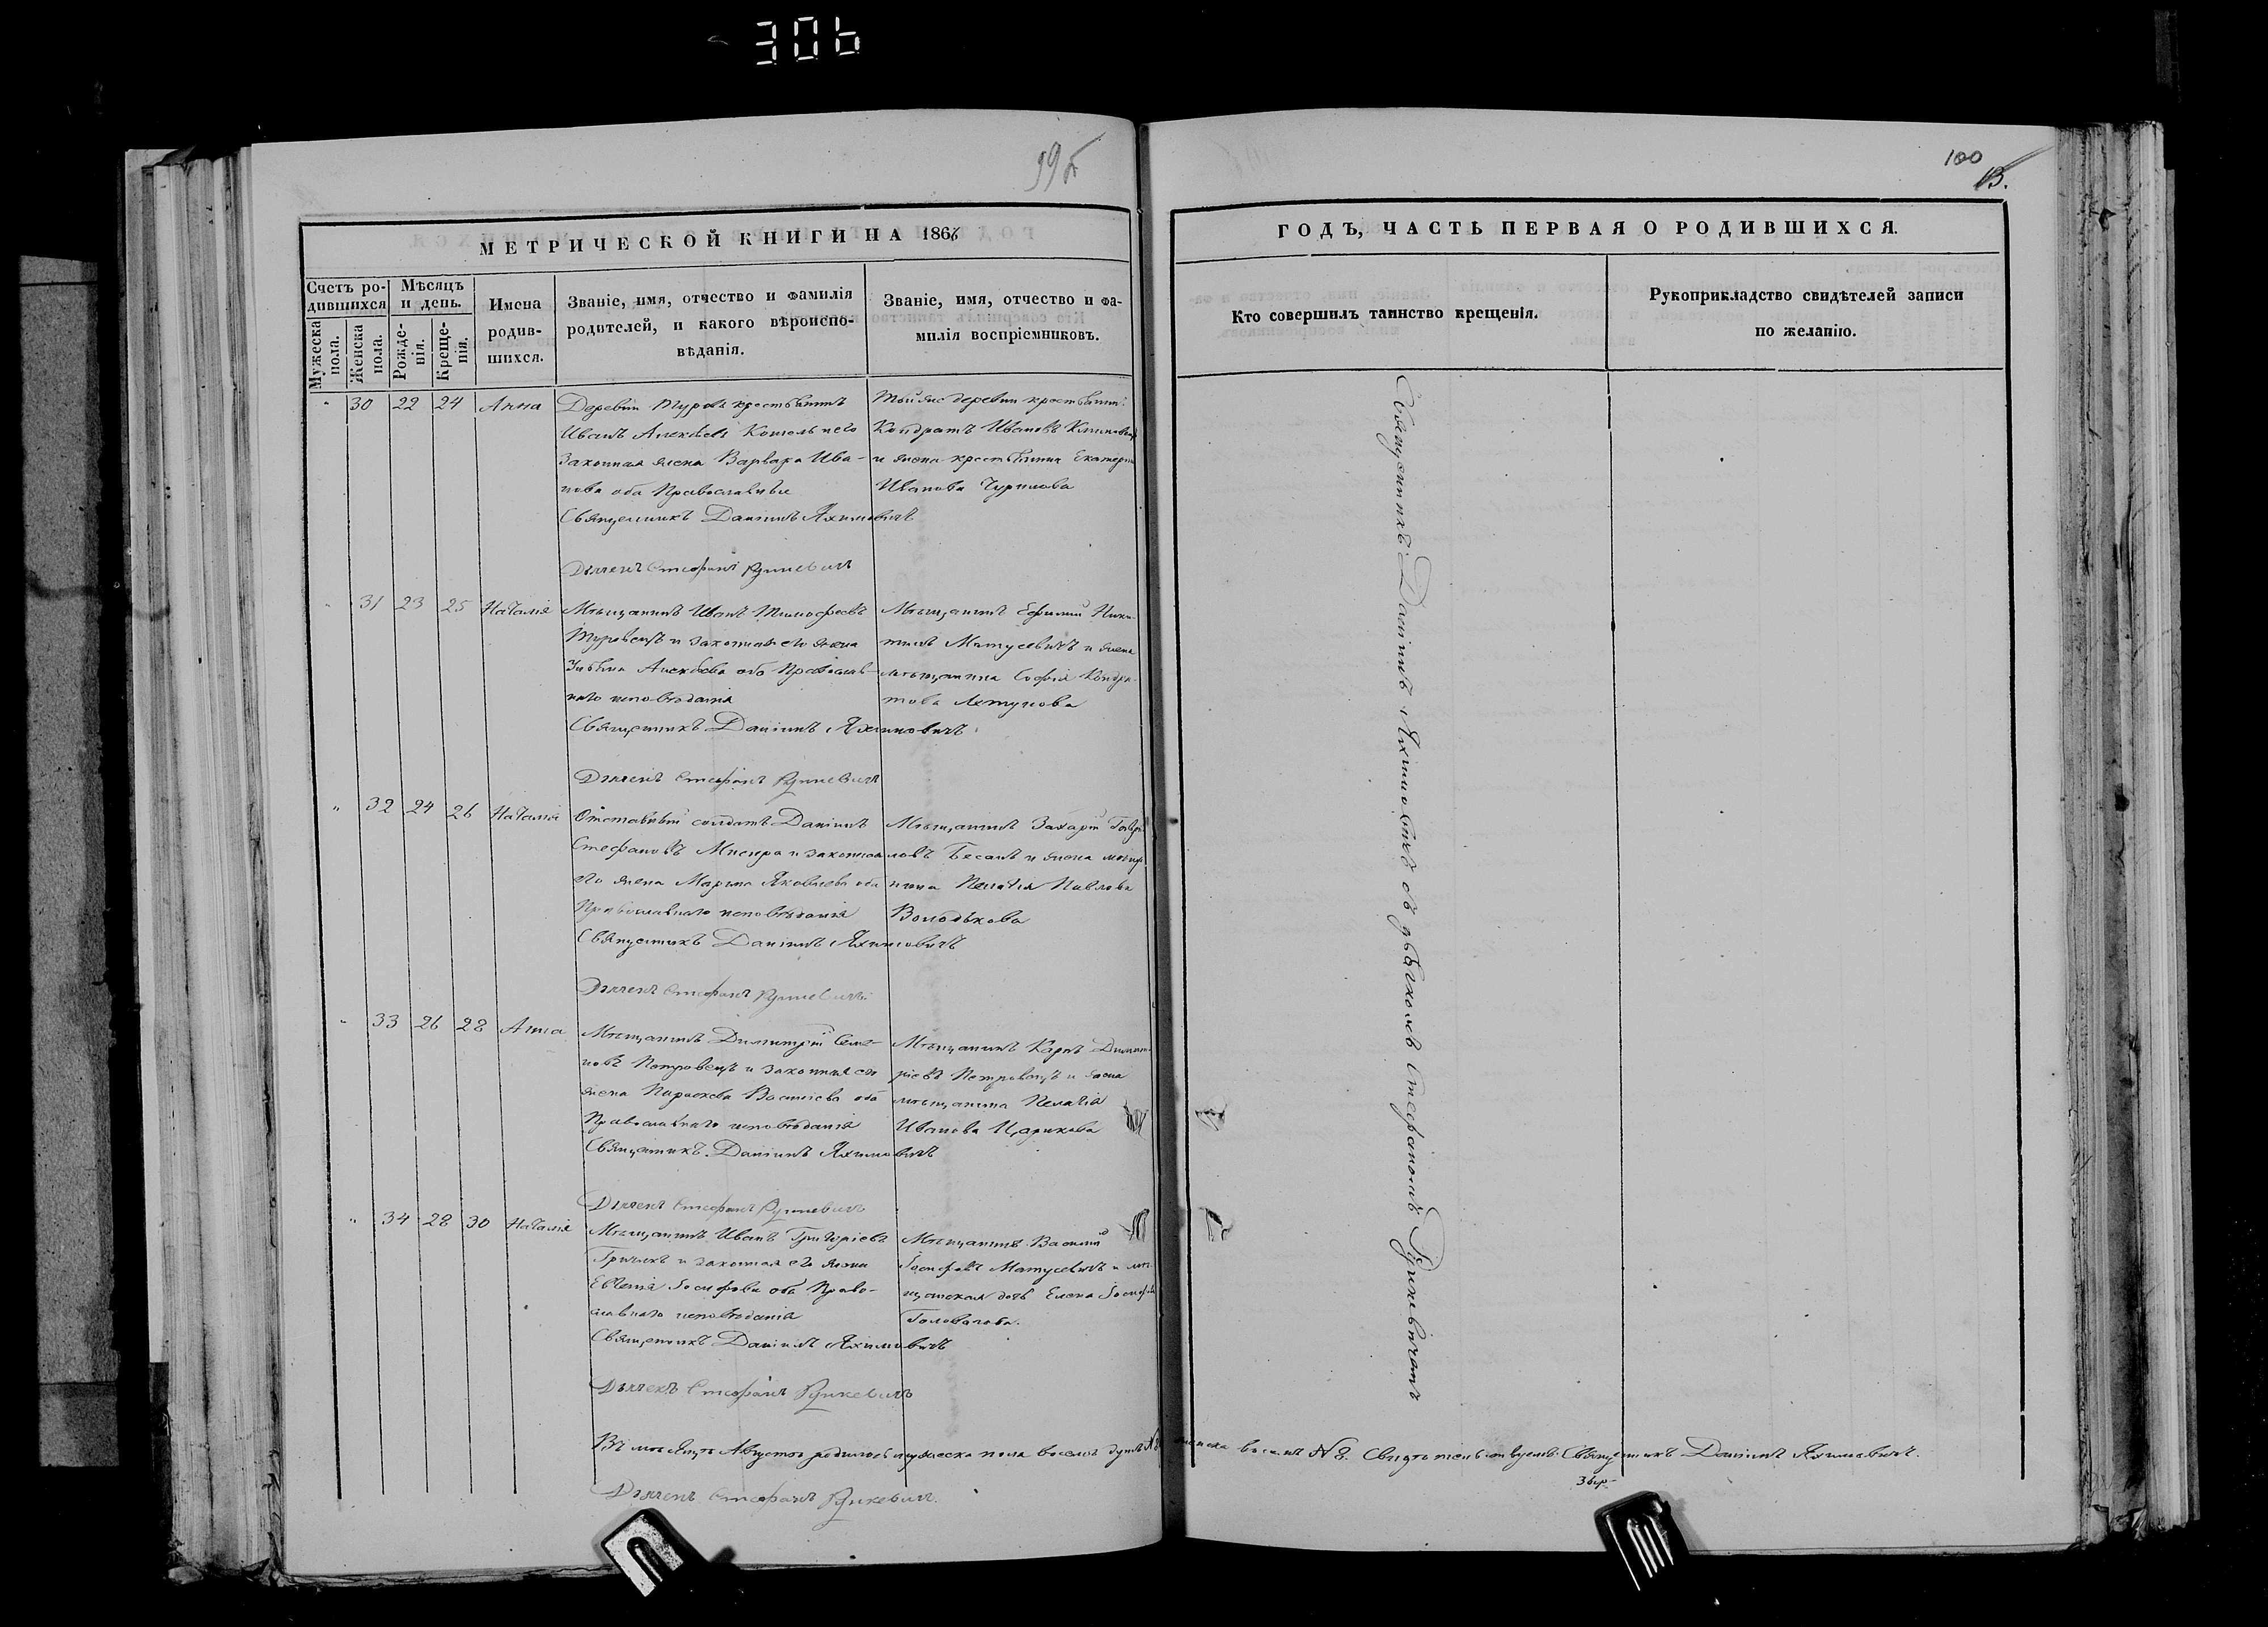 306
99б
МЕТРИЧЕСКОЙ КНИГИ НА 1867
Счетъ ро-
дившихся
Мужеска пола.
Женска пола.
Мѣсяцъ и день.
Рожде-
нія.
Креще-
нія.
Имена
родив-
шихся.
Званіе, имя, отчество и фамилія
родителей, и какого вѣроиспо-
вѣданія.
Званіе, имя, отчество и фа-
милія воспріемниковъ.
" 30 22 24 Анна
Деревни Туровъ крестьянинъ
Иванъ Алексѣевъ его
Законная жена Варвара Ива-
нова оба Православные
Священникъ Даніилъ Яхимовичъ
Дьячекъ Стефанъ Рункевичъ
Той же деревни крестьянин.
Кондратъ Ивановъ
и жена крестьянина Екатерина
Иванова Чурилова
" 31 23 25 Наталія
Мѣщанинъ Иванъ Тимофеевъ
Туровецъ и законная его жена
Алексѣева оба Православ-
наго исповѣданія
Священникъ Даніилъ Яхимовичъ
Дьячекъ Стефанъ Рункевичъ
Мѣщанинъ Ефимій Ники-
тинъ Матусевичъ и жена
мѣщанина Софія Кондра-
това Летунова
" 32 24 26 Наталія
Отставный солдатъ Даніилъ
Стефановъ и законная
его жена Марина Яковлева оба
Православнаго исповѣданія
Священникъ Даніилъ Яхимовичъ
Дьячекъ Стефанъ Рункевичъ
Мѣщанинъ Захарій
и жена мѣща-
нина Пелагія Павлова
Володькова
" 33 26 28 Анна
Мѣщанинъ Димитрій Семе-
новъ Петровецъ и законная его
жена Параскева Василіева оба
Православнаго исповѣданія
Священникъ Даніилъ Яхимовичъ
Дьячекъ Стефанъ Рункевичъ
Мѣщанинъ Карпъ Димит-
ріевъ Петровецъ и жена
мѣщанина Пелагія
Иванова Царикова
" 34 28 30 Наталія
Мѣщанинъ Иванъ Григоріевъ
Гричикъ и законная его жена
Евгенія Іосифова оба Право-
славнаго исповѣданія
Священникъ Даніилъ Яхимовичъ
Дьячекъ Стефанъ Рункевичъ
Мѣщанинъ Василій
Іосифовъ Матусевичъ и мѣ-
щанская дочь Елена Іосифова
Головачова.
100
13.
ГОДЪ, ЧАСТЬ ПЕРВАЯ О РОДИВШИХСЯ.
Кто совершилъ таинство крещенія.
Рукоприкладство свидѣтелей записи
по желанію.
Священникъ Даніилъ Яхимовичъ съ дьячкомъ Стефаномъ Рункевичемъ
Въ мѣсяцѣ Августѣ родилось мужеска пола восемь душъ женска восемь №8. Священникъ Даніилъ Яхимовичъ.
Дьячекъ Стефанъ Рункевичъ.